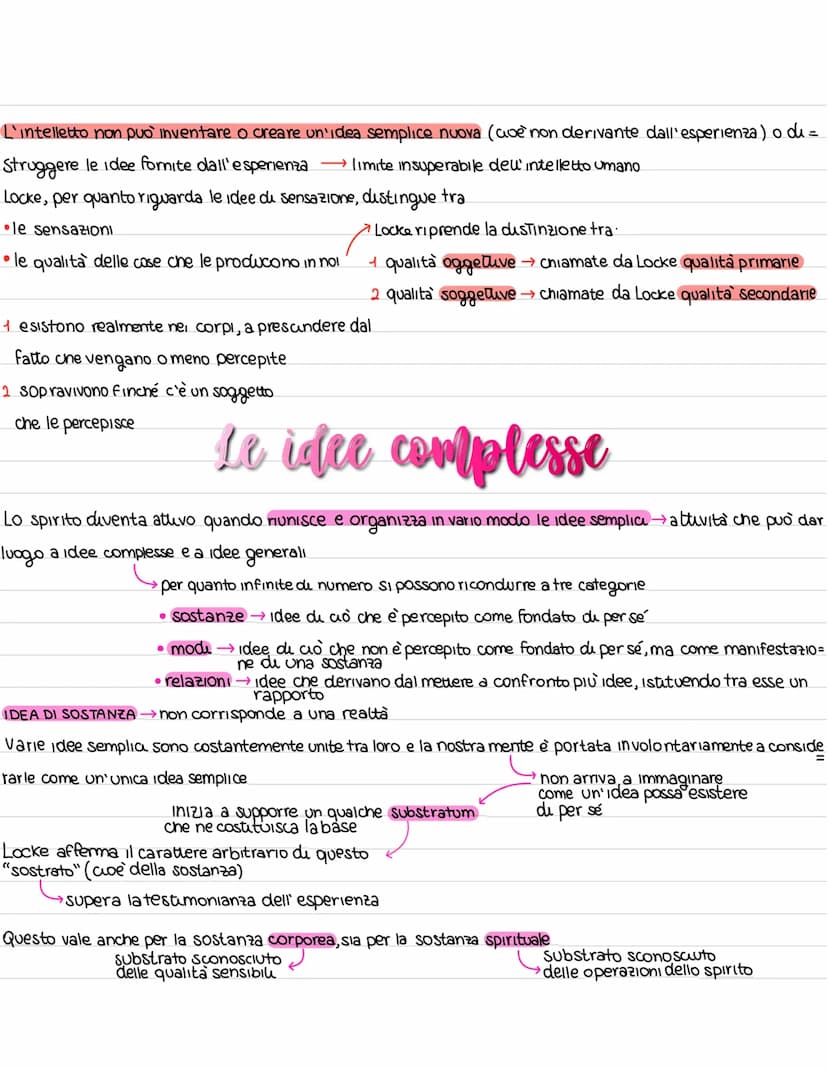 L'intelletto non può inventare o creare un'idea semplice nuova (cioè non derivante dall'esperienza) o di=
struggere le idee fornite dall'esperienza → limite insuperabile dell'intelletto umano
Locke, per quanto riguarda le idee di sensazione, distingue tra
• le sensazioni
• le qualità delle cose che le producono in noi
Locke riprende la distinzione tra:
1 qualità oggettive → chiamate da Locke qualità primarie
2 qualità soggettive → chiamate da Locke qualità secondarie
1 esistono realmente nei corpi, a prescindere dal
fatto che vengano o meno percepite
2 sopravivono finché c'è un soggetto
che le percepisce
Le idee complesse
Lo spirito diventa attivo quando riunisce e organizza in vario modo le idee semplici → attività che può dar
luogo a idee complesse e a idee generali
per quanto infinite di numero si possono ricondurre a tre categorie
• sostanze → idee di ciò che è percepito come fondato di per sé
• modi → idee di ciò che non è percepito come fondato di per sé, ma come manifestazio=
ne di una sostanza
• relazioni → idee che derivano dal mettere a confronto più idee, istituendo tra esse un
rapporto
IDEA DI SOSTANZA → non corrisponde a una realtà
Varie idee semplici sono costantemente unite tra loro e la nostra mente è portata involontariamente a conside=
rarle come un'unica idea semplice
non arriva a immaginare
come un'idea possa esistere
di per sé
inizia a supporre un qualche substratum
che ne costituisca la base
Locke afferma il carattere arbitrario di questo
"sostrato" (cioè della sostanza)
supera la testimonianza dell'esperienza
Questo vale anche per la sostanza corporea, sia per la sostanza spirituale
substrato sconosciuto
delle qualità sensibili
substrato sconosciuto
delle operazioni dello spirito